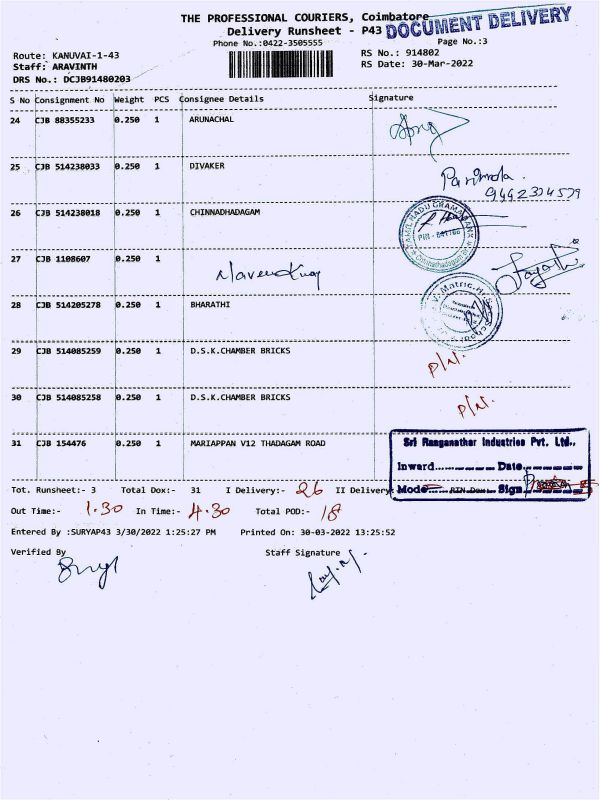 THE PROFESSIONAL COURIERS, Coimbatore
DOCUMENT DELIVERY
Delivery Runsheet - P43
Phone No.:0422-3505555
Page No.:3
Route: KANUVAI-1-43
RS No.: 914802
Staff: ARAVINTH
RS Date: 30-Mar-2022
DRS No.: DCJB91480203
S No Consignment No Weight PCS Consignee Details Signature
24 CJB 88355233 0.250 1 ARUNACHAL
25 CJB 514238033 0.250 1 DIVAKER
26 CJB 514238018 0.250 1 CHINNADHADAGAM
27 CJB 1108607 0.250 1
28 CJB 514205278 0.250 1 BHARATHI
29 CJB 514085259 0.250 1 D.S.K.CHAMBER BRICKS
P/N.
30 CJB 514085258 0.250 1 D.S.K.CHAMBER BRICKS
P/N.
31 CJB 154476 0.250 1 MARIAPPAN V12 THADAGAM ROAD
Sri Ranganathar Industries Pvt. Ltd.,
Inward Date
Mode Sign
Tot. Runsheet:- 3 Total Dox:- 31 I Delivery:- 26 II Delivery
Out Time:- 1.30 In Time:- 4.30 Total POD:- 18
Entered By :SURYAP43 3/30/2022 1:25:27 PM Printed On: 30-03-2022 13:25:52
Verified By Staff Signature